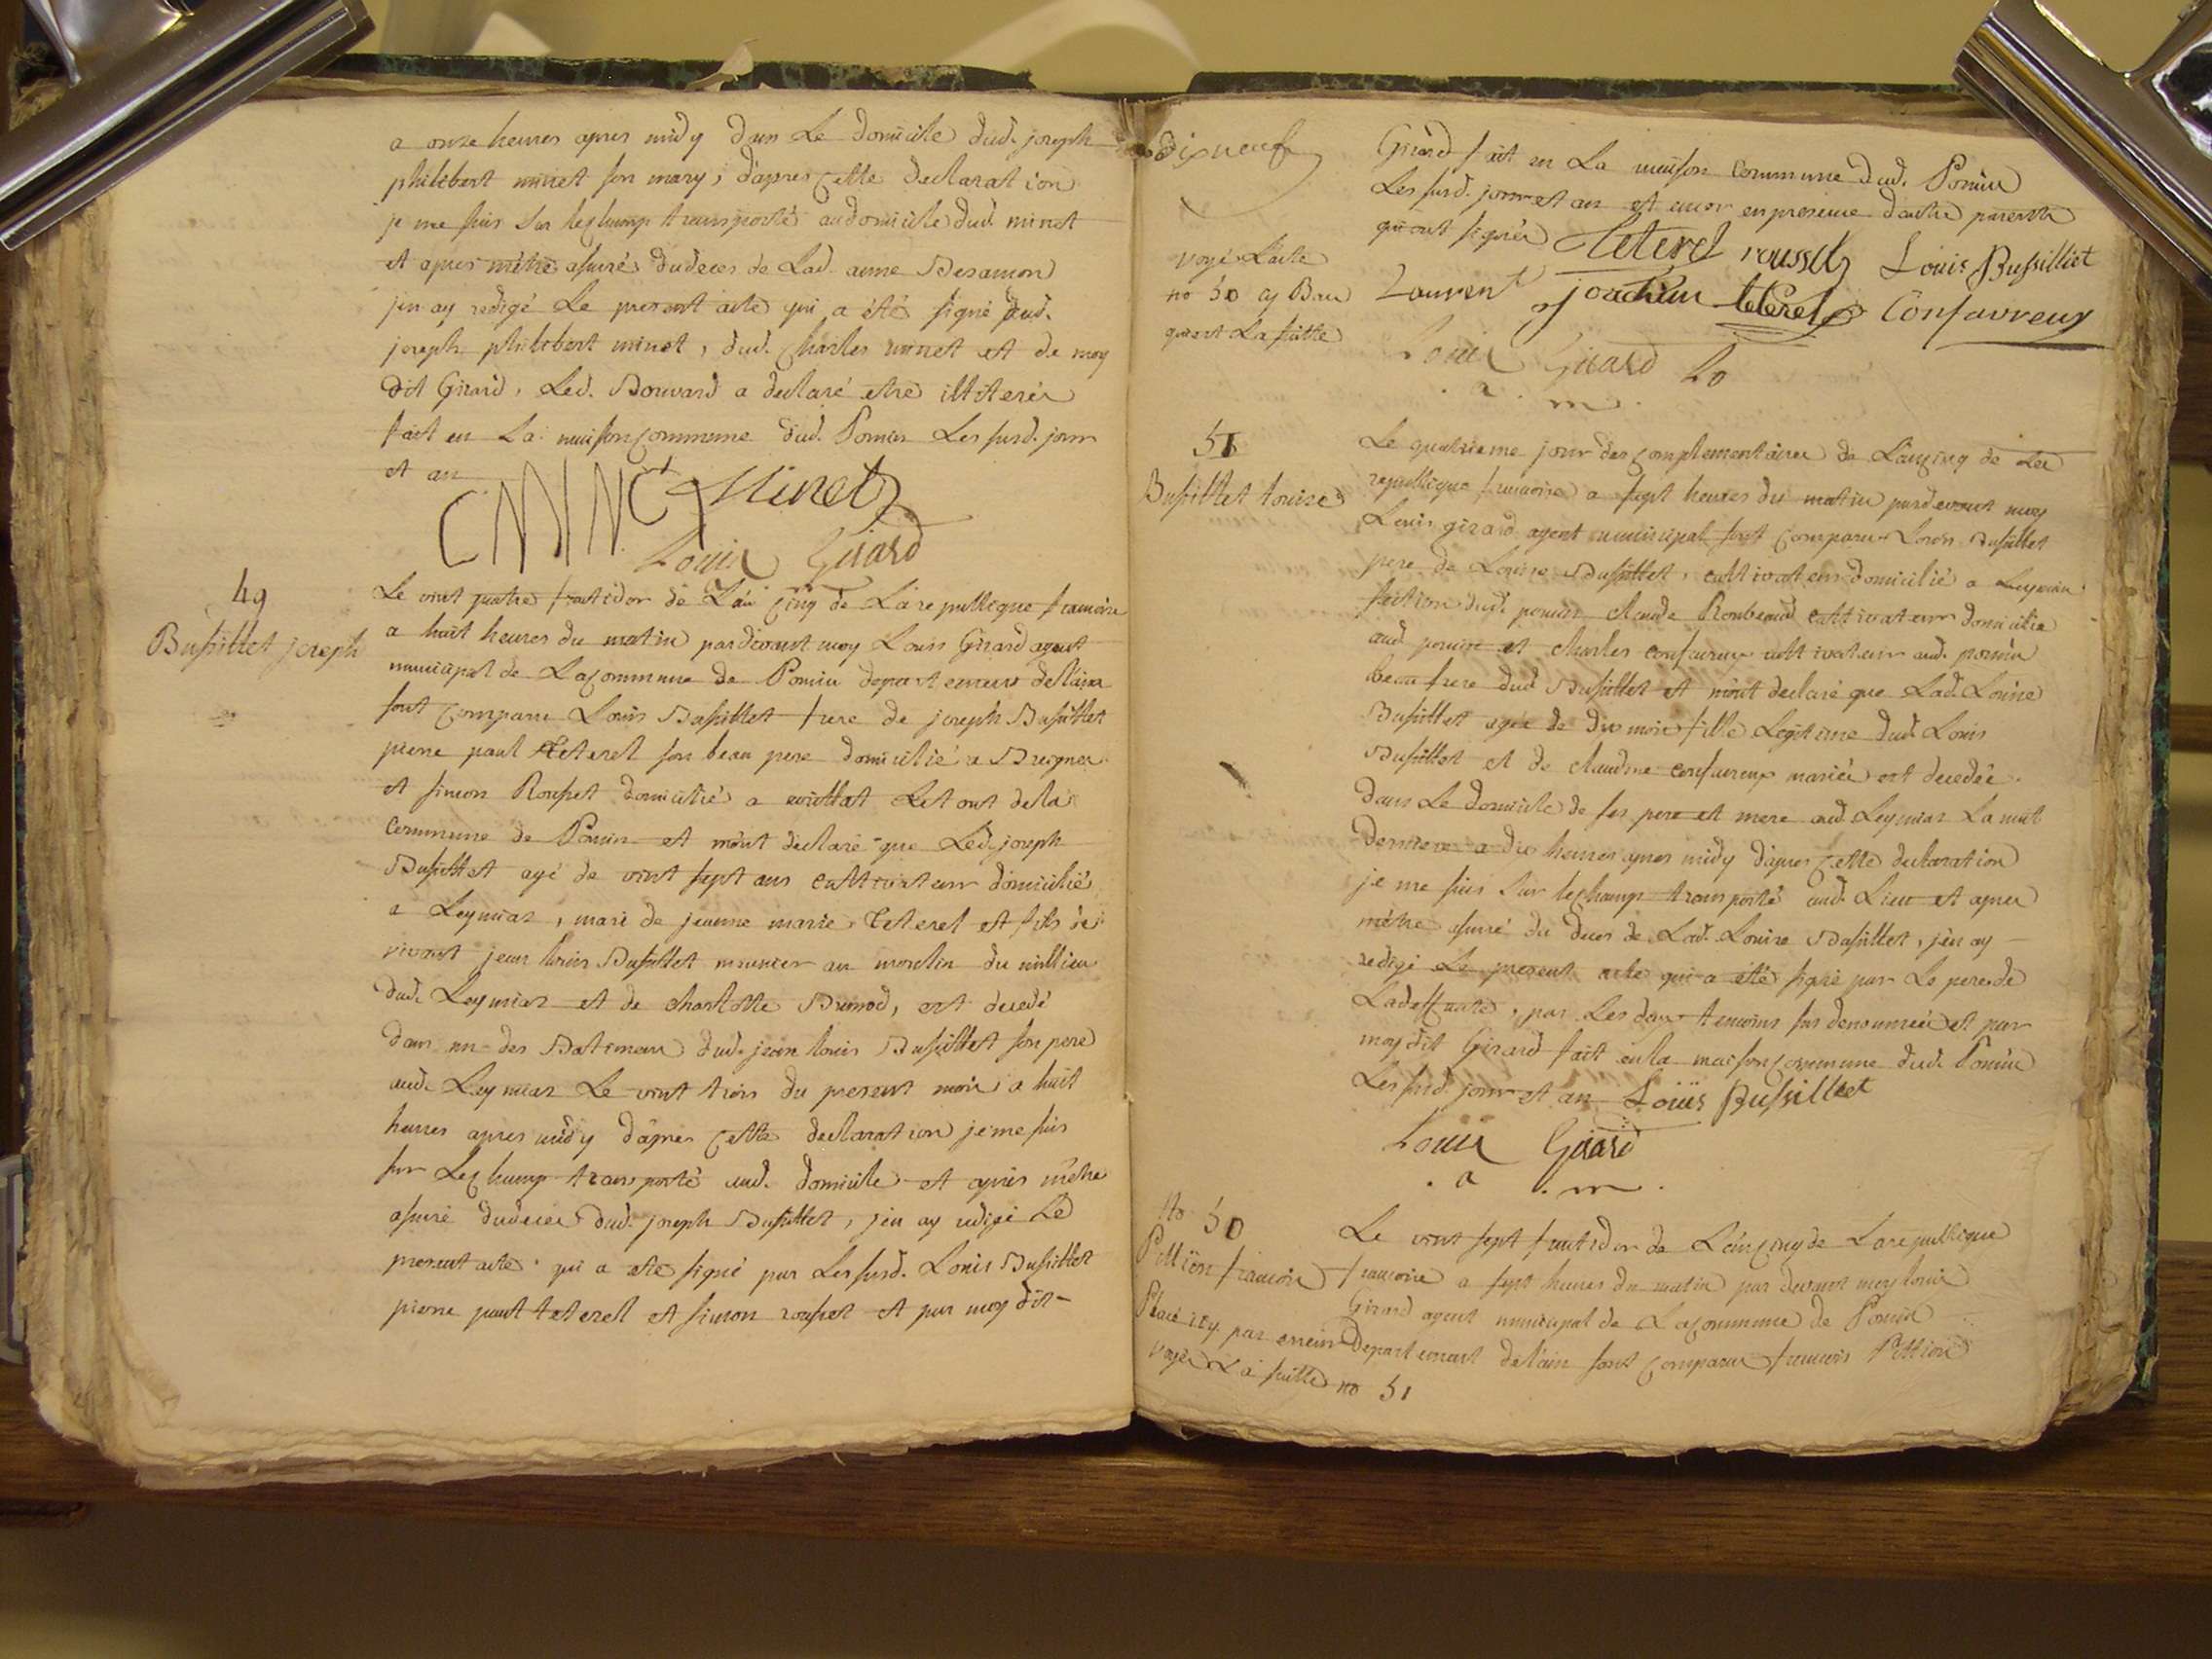 a onze heures apres midy dans Le domicile dud. joseph
philibert minet son mary, d'apres cette declaration
je me suis sur le champ transporté au domicile dud. minet
et apres m'etre assuré du deces de Lad. anne Besanson
j'en ay redigé Le present acte qui a été signé dud.
joseph philibert minet, dud. Charles minet et de moy
dit Girard, Led. Bouvard a declaré etre illiteré
fait en La maison commune dud. Poncin Les susd. jour
et an
Minet
Louis Girard
49
Bussillet joseph
Le vint quatre fructidor de L'an cinq de La republique francoise
a huit heures du matin pardevant moy Louis Girard agent
municipal de La commune de Poncin departement de l'ain
sont comparu Louis Bussillet frere de joseph Bussillet
pierre paul teterel son beau pere domicilié a
et simon Rousset domicilié a et tout de la
commune de Poncin et m'ont declaré que Led. joseph
Bussillet agé de vint sept ans cultivateur domicilié
a Leymiat, mari de jeanne marie teterel et fils de
vivant jean louis Bussillet meunier au moulin du millieu
dud. Leymiat et de charlotte Brunod, est decedé
dans un des Batimens dud. jean louis Bussillet son pere
aud. Leymiat Le vint trois du present mois a huit
heures apres midy d'apres cette declaration je me suis
sur Le champ transporté aud. domicile et après m'etre
assuré du deces dud. joseph Bussillet, j'en ay redigé Le
present acte qui a été signé par Les susd. Louis Bussillet
pierre paul teterel et simon rousset et par moy dit
dixneuf
Girard fait en La maison commune dud. Poncin
Les susd. jour et an et encor en presence d'autre parents
qui ont signés teterel rousset Louis Bussilliet
Laurent joachim teterel Confavreux
voyé L'acte
no 50 cy Bas
qui est La suitte
Louis Girard
a . m .
51
Bussillet Louise
Le quatrieme jour des complementaires de L'an cinq de La
republique francoise a sept heures du matin pardevant moy
Louis girard agent municipal sont comparu Louis Bussillet
pere de Louise Bussillet, cultivateur domicilié a Leymiat
section dud. poncin claude Roubeaud cultivateur domicilié
aud poncin et charles confavreux cultivateur aud. poncin
beau frere dud Bussillet et m'ont declaré que Lad. Louise
Bussillet agée de dix mois fille Legitime dud. Louis
Bussillet et de claudine confavreux mariés est decedée
dans Le domicile de ses pere et mere aud. Leymiat La nuit
derniere a dix heures apres midy d'apres cette declaration
je me suis sur le champ transporté aud. Lieu et apres
m'etre assuré du deces de Lad. Louise Bussillet, j'en ay
redigé Le present acte qui a été signé par Le pere de
Ladeffunte, par Les deux temoins sus denommés et par
moy dit Girard fait en la maison commune dud. Poncin
Les susd. jour et an Louis Bussilliet
Louis Girard
. a . m .
No 50
Pittion francois
Placé icy par erreur
voyés La suitte no 51
Le vint sept fructidor de L'an cinq de La republique
francoise a sept heures du matin par devant moy louis
Girard agent municipal de La commune de Poncin
Departement de l'ain sont comparu francois Pittion